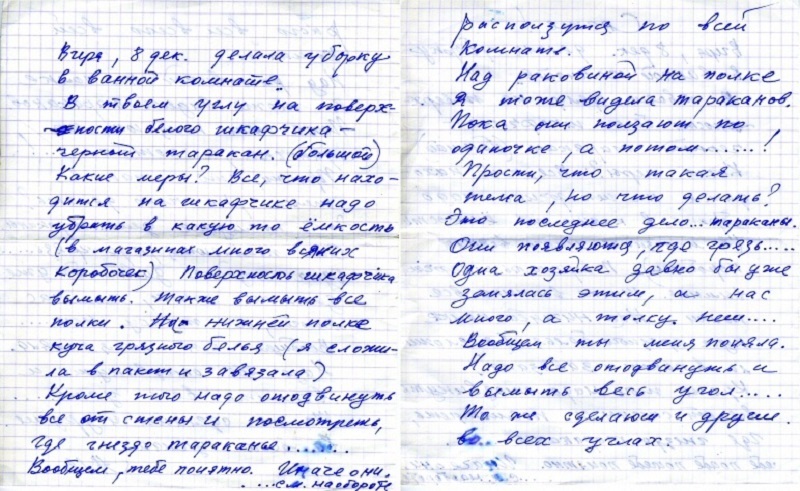 Вчера, 8 дек. делала уборку
в ванной комнате.
В твоем углу на поверх-
-ности белого шкафчика –
черный таракан. (большой)
Какие меры? Все, что нахо-
дится на шкафчике надо
убрать в какую то ёмкость
(в магазинах много всяких
коробочек) Поверхность шкафчика
вымыть. Также вымыть все
полки. На нижней полке
куча грязного белья (я сложи-
ла в пакет и завязала)
Кроме того надо отодвинуть
все от стены и посмотреть,
где гнездо тараканье......
Вообщем, тебе понятно. Иначе они.
....см. на обороте
расползутся по всей
комнате.
Над раковиной на полке
я тоже видела тараканов.
Пока они ползают по
одиночке, а потом......!
Прости, что такая
тема, но что делать?
Это последнее дело... тараканы.
Они появляются, где грязь.....
Одна хозяйка давно бы уже
занялась этим, а нас
много, а толку нет....
Вообщем ты меня поняла.
Надо все отодвинуть и
вымыть весь угол.....
То же сделают и другие
во всех углах.